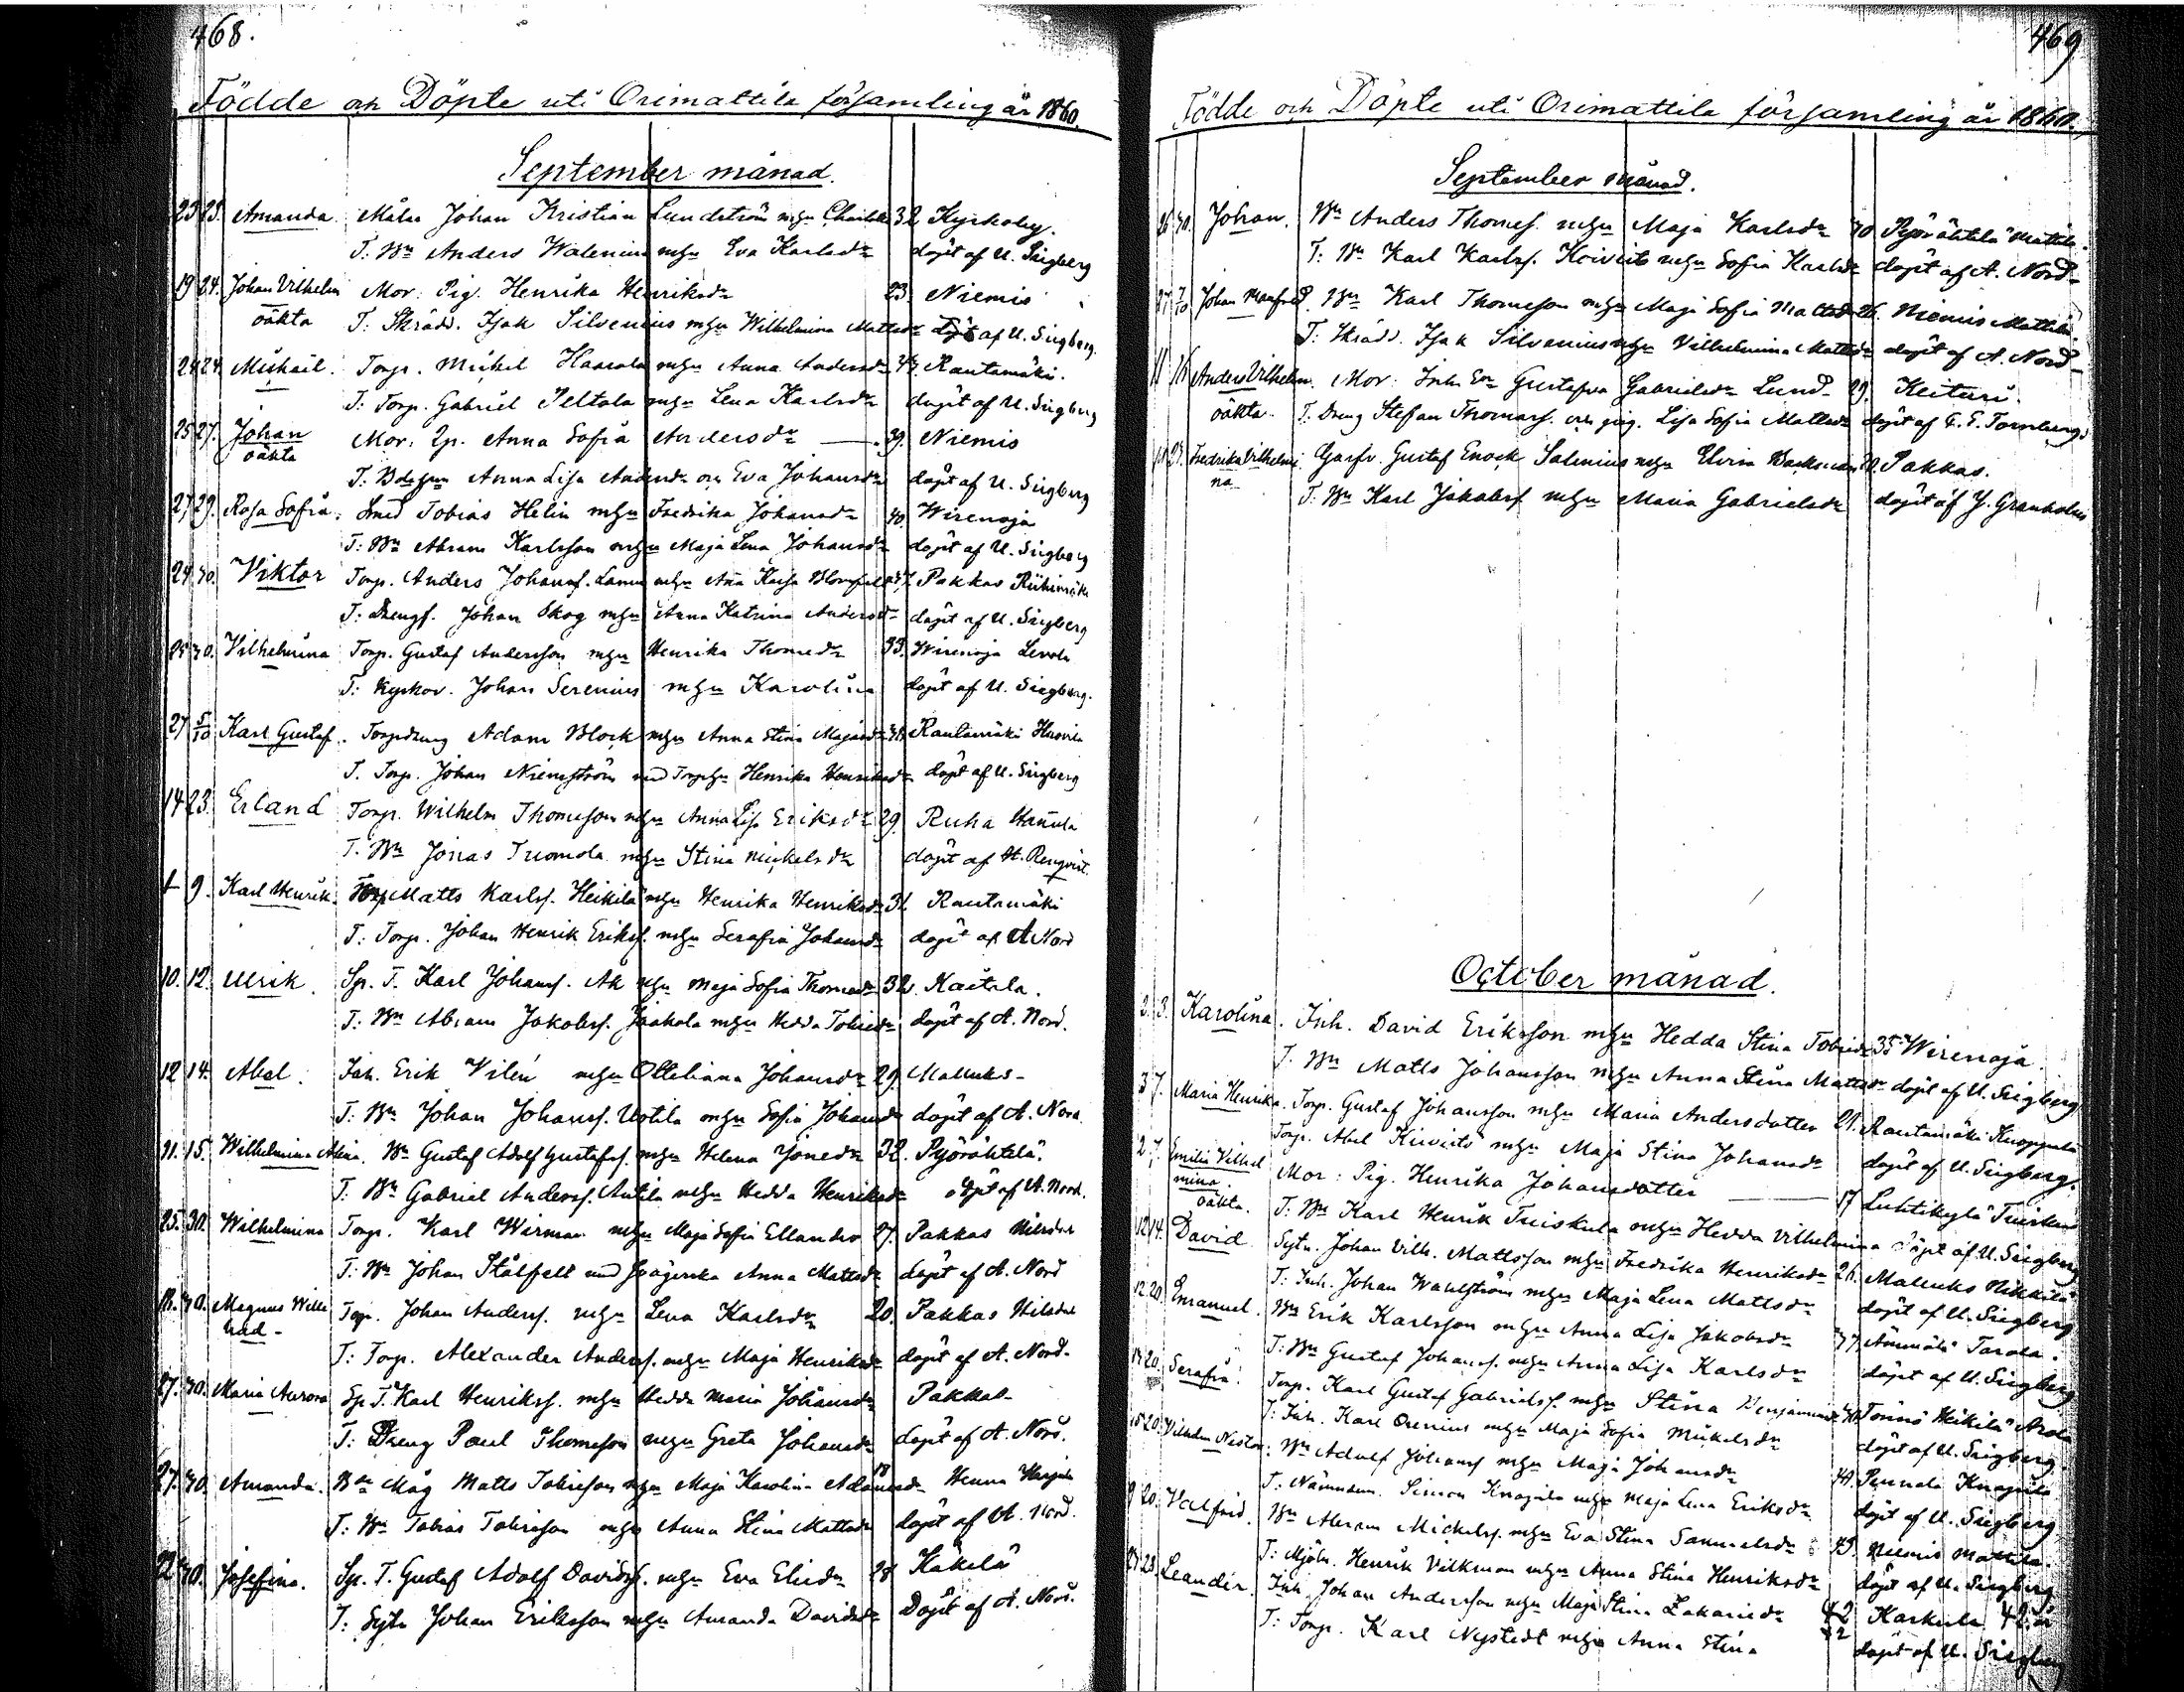 468.
Födde och Döpte uti Orimattila församling år 1860.
September månad.
23 23. Amanda. Målar Johan Kristian Lundström mhu Charlotta 32 Kyrkoby.
T: Bn Anders Walenius mhu Eva Karlsdr döpt af U. Siegberg
19 24. Johan Vilhelm Mor: Pig. Henrika Henriksdr 23. Niemis
oäkta T: Skrädd. Isak Silvenius mhu Wilhelmina Mattsdr döpt af U. Siegberg.
24 24. Mickail. Torp. Mickel Haarala mhu Anna Andersdr Rautamäki.
T: Torp. Gabriel Peltola mhu Lena Karlsdr döpt af U. Siegberg
25 27. Johan Mor: Anna Sofia Andersdr — 39. Niemis
oäkta
T: Anna Lisa Andersdr och Eva Johansdr döpt af U. Siegberg
27 29. Rosa Sofia. Smed Tobias Helin mhu Fredrika Johansdr 40. Wirenoja
T: Bn Abram Karlsson mhu Maja Lena Johansdr döpt af U. Siegberg
24 30. Viktor Torp. Anders Johanss. mhu Anna Kaisa Pakkas Riihimäki
T: Drengs. Johan Skog mhu Anna Katrina Andersdr döpt af U. Siegberg
30. Vilhelmina Torp. Gustaf Andersson mhu Henrika Thomedr 33. Wirenoja Levola
T: Kyrkov. Johan Serenius mhu Karolina döpt af U. Siegberg.
27 5/10 Karl Gustaf. Torpdreng Adam Block mhu Anna Stina Rautamäki
T. Torp. Johan Niemström med Henrika Henriksdr döpt af U. Siegberg
14 23. Erland Torp. Wilhelm Thomesson mhu Anna Lisa Eriksdr 29. Ruha Hannula
T. Bn Jonas Tuomola mhu Stina Mickelsdr döpt af H. Renqvist.
9. Karl Henrik. Torp. Matts Karlss. Heikilä mhu Henrika Henriksdr 31 Rautamäki
T: Torp. Johan Henrik Erikss. mhu Serafia Johansdr döpt af A Nord
10. 12. Ulrik. Sp. T. Karl Johanss. Ak mhu Maja Sofia Thomasdr 32. Kaitala.
T: Bn Abram Jakobss. Jaakola mhu Hedda Tobiedr döpt af A. Nord.
12 14. Abel. Inh. Erik Vilén mhu Otteliana Johansdr 29. Mallusks-
T: Bn Johan Johanss. Uotila mhu Sofia Johansdr döpt af A. Nord.
11. 15. Wilhelmina Alina. Bn Gustaf Adolf Gustafss. mhu Helena Jonedr 32. Pyörähtilä.
T: Bn Gabriel Anderss. Antila mhu Hedda Henriksdr döpt af A. Nord.
25. 30. Wilhelmina Torp. Karl Wirman mhu Maja Sofia Ellandsdr 27. Pakkas
T: Bn Johan Stålfelt med Anna Mattsdr döpt af A. Nord
18. 30. Magnus Wille Torp. Johan Anderss. mhu Lena Karlsdr 20. Pakkas
had-
T: Torp. Alexander Anderss. mhu Maja Henriksdr döpt af A. Nord.
27. 30. Maria Aurora Sp. T. Karl Henrikss. mhu Hedda Maria Johansdr Pakkas-
T: Dreng Paul Thomesson mhu Greta Johansdr döpt af A. Nord.
27. 30. Amanda. Bn Måg Matts Tobiesson mhu Maja Karolina Adamsdr Henna
T: Bn Tobias Tobiesson mhu Anna Stina Mattsdr döpt af A. Nord.
22 30. Josefina. Sp. T. Gustaf Adolf Davidss. mhu Eva Eliedr 28 Käkelä
T: Sytn Johan Eriksson mhu Amanda Davidsdr Döpt af A. Nord.
469
Födde och Döpte uti Orimattila församling år 1860.
September månad.
26 30. Johan. Bn Anders Thomess. mhu Maja Karlsdr 40 Pyörähtilä Mattila.
T: Bn Karl Karlss. Koivisto mhu Sofia Karlsdr döpt af A. Nord-
27. 7/10 Johan Manfred. Bn Karl Thomesson mhu Maja Sofia Mattsdr 26. Niemis Mattila.
T: Skrädd. Isak Silvenius mhu Vilhelmina Mattsdr döpt af A. Nord-
11 16 Anders Vilhelm. Mor: Inh. Gustafva Gabrielsdr Lund. 29. Keituri.
oäkta. T. Dreng Stefan Thomass. och pig. Lisa Sofia Mattsdr döpt af Tornberg.
Fredrika Vilhelmi Garfv. Gustaf Enock Salenius mhu Elvira Backman Pakkas.
na T. Bn Karl Jakobss mhu Maria Gabrielsdr döpt af Granholm
October månad.
3. 3. Karolina. Inh. David Eriksson mhu Hedda Stina Tobiedr 35 Wirenoja.
T. Bn Matts Johansson mhu Anna Stina Mattsdr döpt af U. Siegberg
3 7. Maria Henrika. Torp. Gustaf Johansson mhu Maria Andersdotter 21. Rautamäki Knoppula
Torp. Abel Kivistö mhu Maja Stina Johansdr döpt af U. Siegberg.
2 7. Emilia Vilhel Mor: Pig. Henrika Johansdotter — 17 Luhtikylä Tuiskula
mina.
oäkta. T: Bn Karl Henrik Tuiskula mhu Hedda Vilhelmina döpt af U. Siegberg
12 14. David Sytn. Johan Vilh. Mattsson mhu Fredrika Henriksdr 26. Mallusks Nikkilä
T: Inh. Johan Wahlström mhu Maja Lena Mattsdr döpt af U. Siegberg
12 20. Emanuel. Bn Erik Karlsson mhu Anna Lisa Jakobsdr Tarola.
T: Bn Gustaf Johanss. mhu Anna Lisa Karlsdr döpt af U. Siegberg
18 20. Serafia. Torp. Karl Gustaf Gabrielss. mhu Stina Benjaminsdr Tönnö Heikilä Arola
T: Inh. Karl Orenius mhu Maja Sofia Mickelsdr döpt af U. Siegberg.
15 20. Vilhelm Nestor. Bn Adolf Johanss mhu Maja Johansdr Pennala Knapila
T: Nämndem. Simon Knapila mhu Maja Lena Eriksdr döpt af U. Siegberg
9 20. Valfrid. Bn Abram Mickelss. mhu Eva Stina Samuelsdr 43. Niemis Mattila.
T: Mjöln. Henrik Vilkman mhu Anna Stina Henriksdr döpt af U. Siegberg
28 Leander. Inh. Johan Andersson mhu Maja Stina Zakariedr 42 Karkula 42 år
T: Torp. Karl Nystedt mhu Anna Stina döpt af U. Siegberg